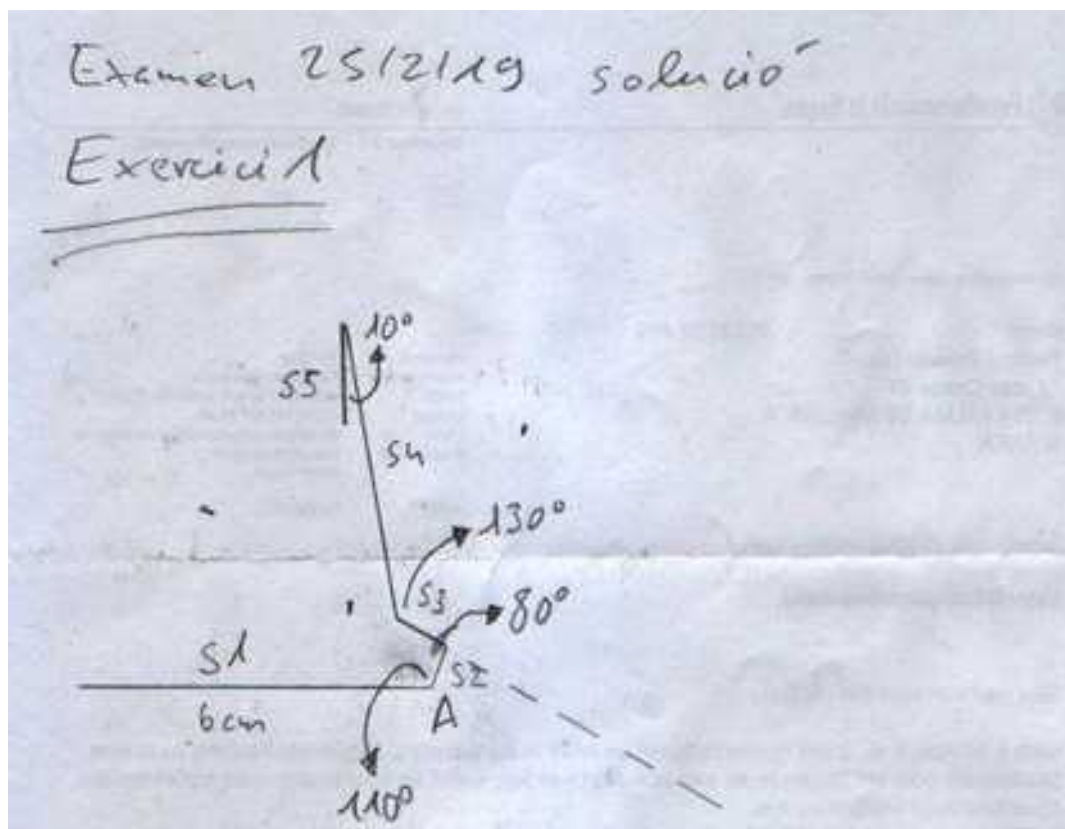 Examen 25/2/19 solució
Exercici 1
10°
S5
S4
130°
S3
80°
S1
S2
6cm
A
110°